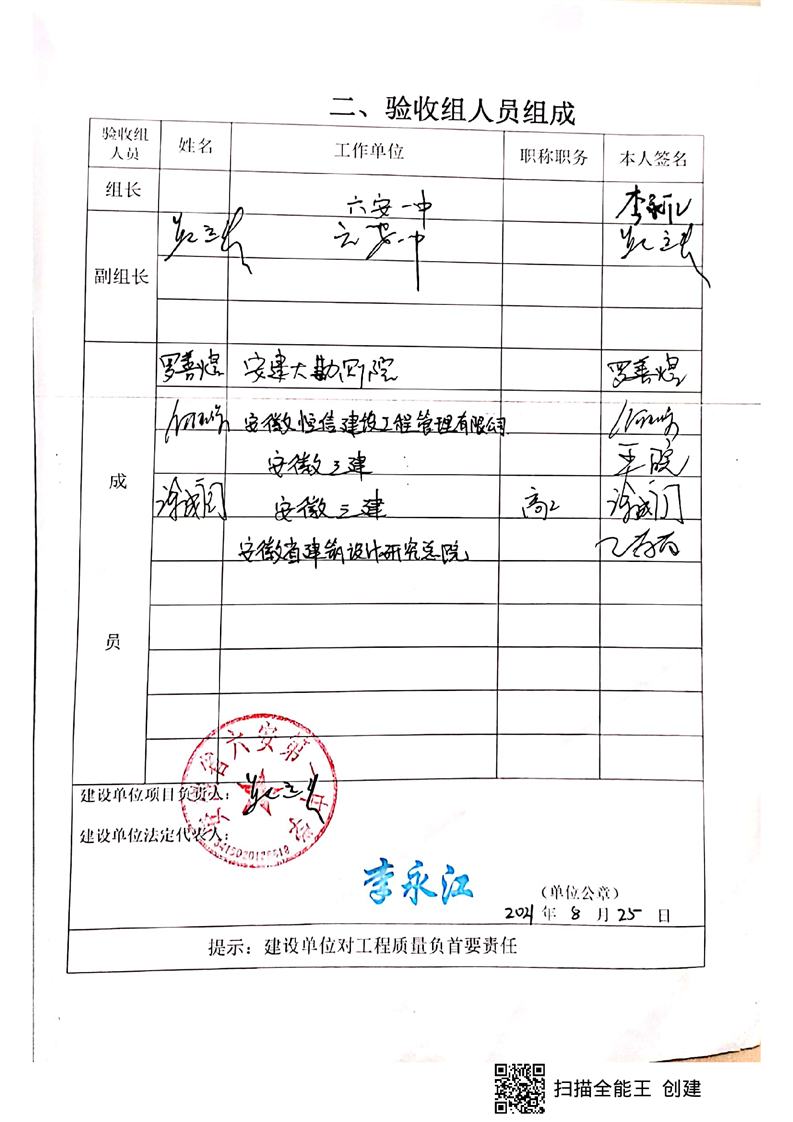 二、验收组人员组成
验收组人员 姓名 工作单位 职称职务 本人签名
组长 六安一中
副组长 六安一中
罗善煜 安建大勘测院 罗善煜
安徽恒信建设工程管理有限公司
安徽三建
成 安徽三建 高工
安徽省建筑设计研究总院
员
安徽省六安第一中学
建设单位项目负责人：
建设单位法定代表人：
李永江
（单位公章）
2021年8月25日
提示：建设单位对工程质量负首要责任
扫描全能王 创建